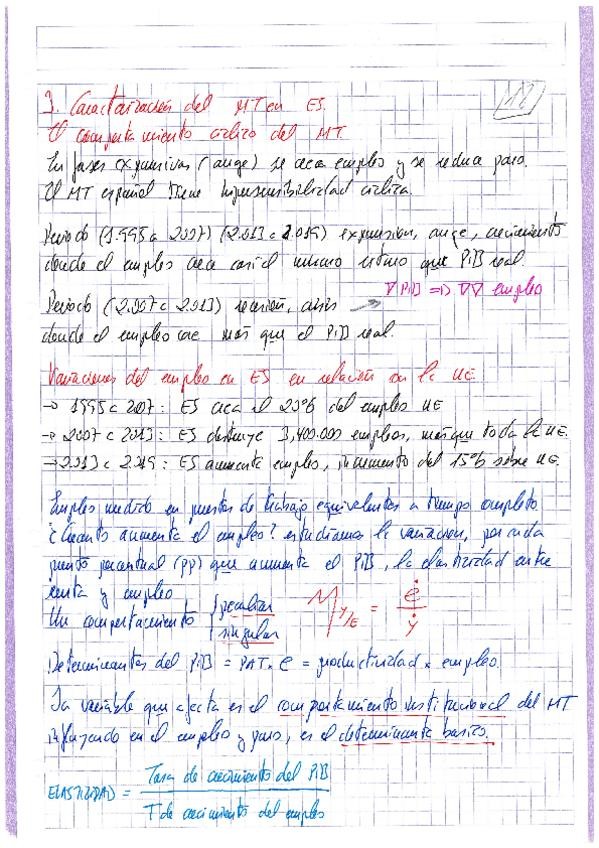 3. Caracterización del MT en ES.
112
El comportamiento cíclico del MT.
En fases expansivas (auge) se crea empleo y se reduce paro.
El MT español tiene hipersensibilidad cíclica.
Periodo (1.995 a 2007) (2.013 a 2.019) expansión, auge, crecimiento
donde el empleo crea casi el mismo ritmo que PiB real.
∇ PiB => ∇∇ empleo
Periodo (2.007 a 2013) recesión, crisis →
donde el empleo cae más que el PiB real.
Variaciones del empleo en ES en relación con la UE.
→ 1995 a 2007: ES crea el 25% del empleo UE
→ 2007 a 2013: ES destruye 3,400.000 empleos, más que toda la UE.
→ 2.013 a 2.019: ES aumenta empleo, incremento del 15% sobre UE.
Empleo medido en puestos de trabajo equivalentes a tiempo completo
¿Cuánto aumenta el empleo? estudiamos la variación, por cada
punto porcentual (pp) que aumenta el PiB, la elasticidad entre
renta y empleo
Un comportamiento { peculiar
singular
η y/E = ė / ẏ
Determinantes del PiB = PAT. e = productividad x empleo
La variable que afecta es el comportamiento institucional del MT
influyendo en el empleo y paro, es el determinante básico.
ELASTICIDAD = Tasa de crecimiento del PiB
T de crecimiento del empleo